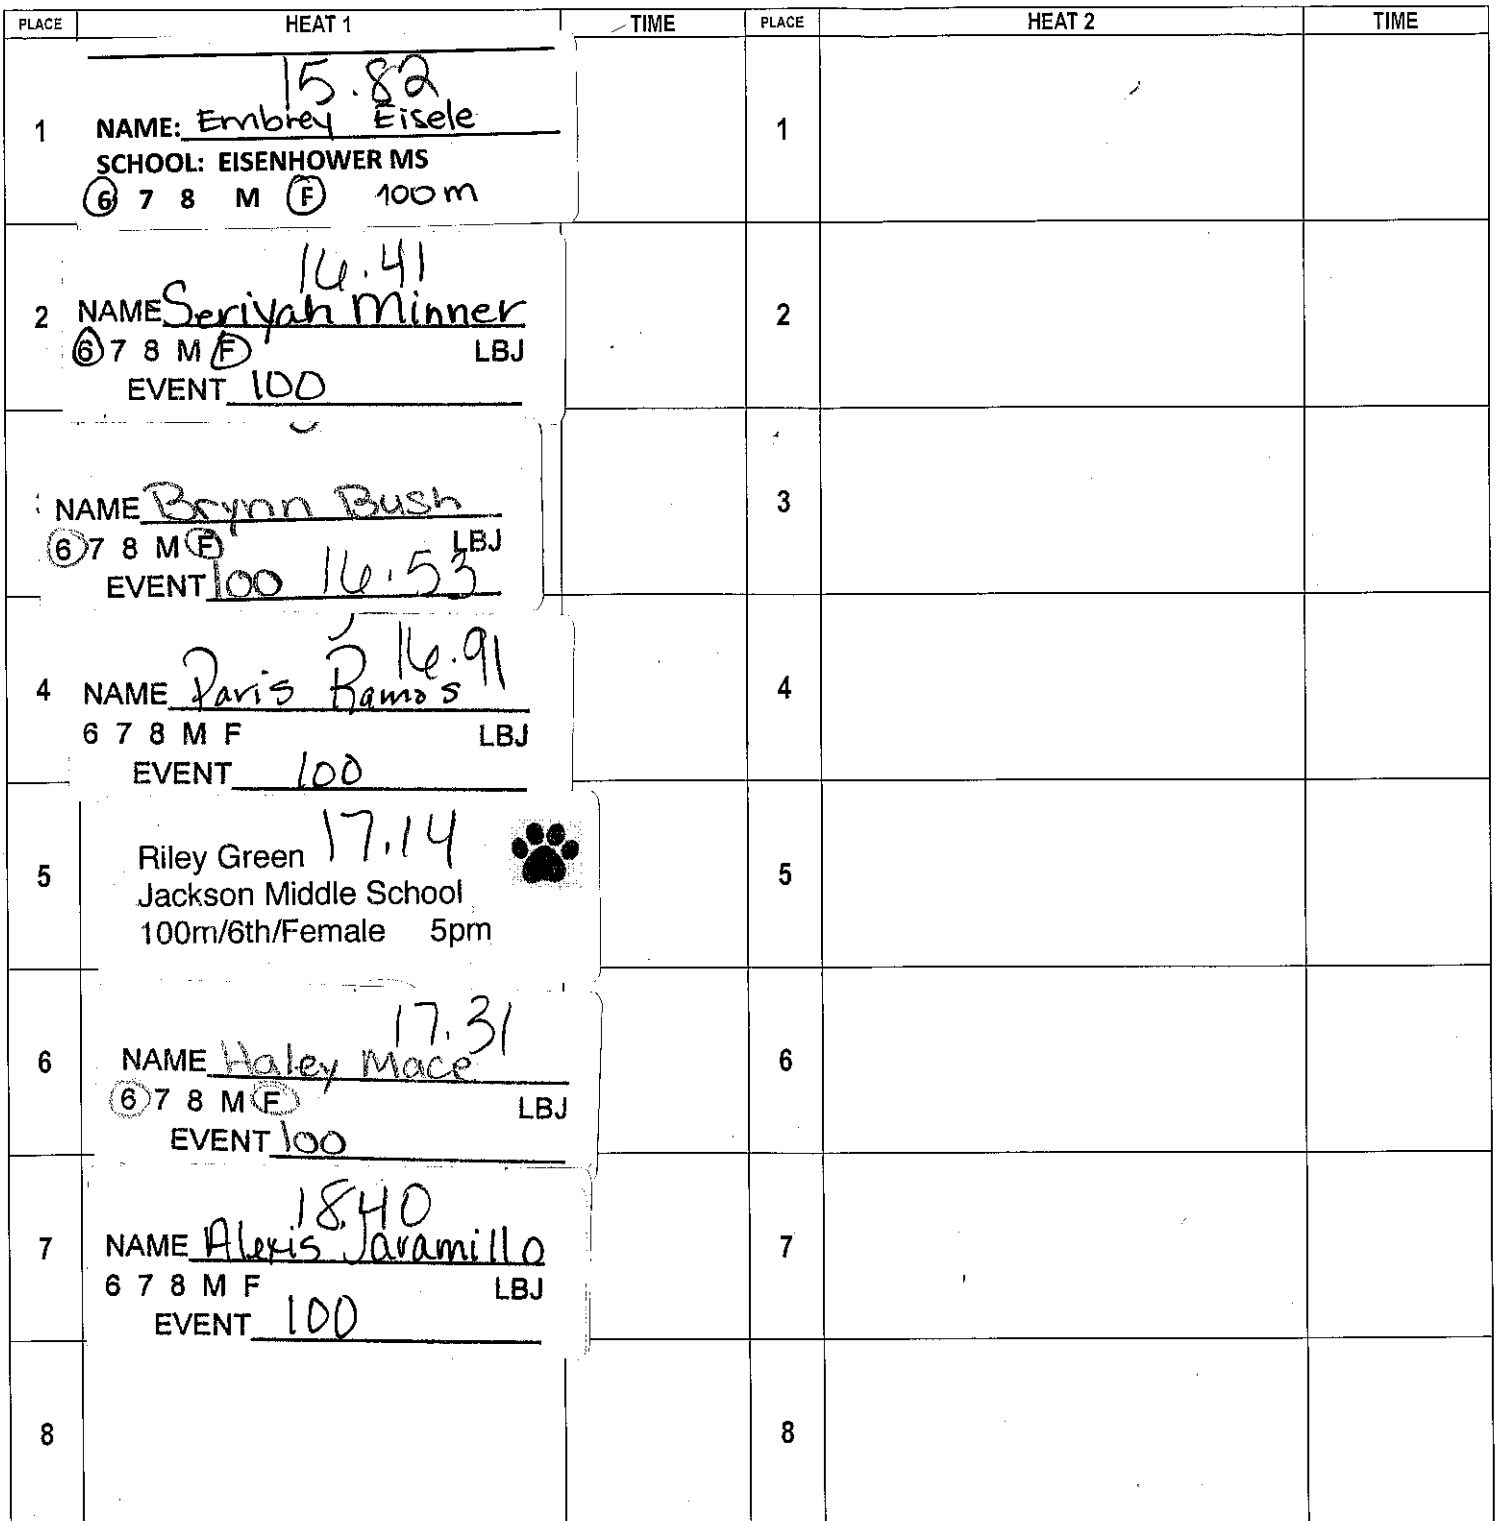 PLACE HEAT 1 TIME PLACE HEAT 2 TIME
15.82
1 NAME: Embrey Eisele 1
SCHOOL: EISENHOWER MS
6 7 8 M F 100m
16.41
2 NAME Seriyah Minner 2
6 7 8 M F LBJ
EVENT 100
NAME Brynn Bush 3
6 7 8 M F LBJ
EVENT 100 16.53
16.91
4 NAME Paris Ramos 4
6 7 8 M F LBJ
EVENT 100
17.14
Riley Green
5 Jackson Middle School 5
100m/6th/Female 5pm
17.31
6 NAME Haley Mace 6
6 7 8 M F LBJ
EVENT 100
18.40
7 NAME Alexis Jaramillo 7
6 7 8 M F LBJ
EVENT 100
8 8